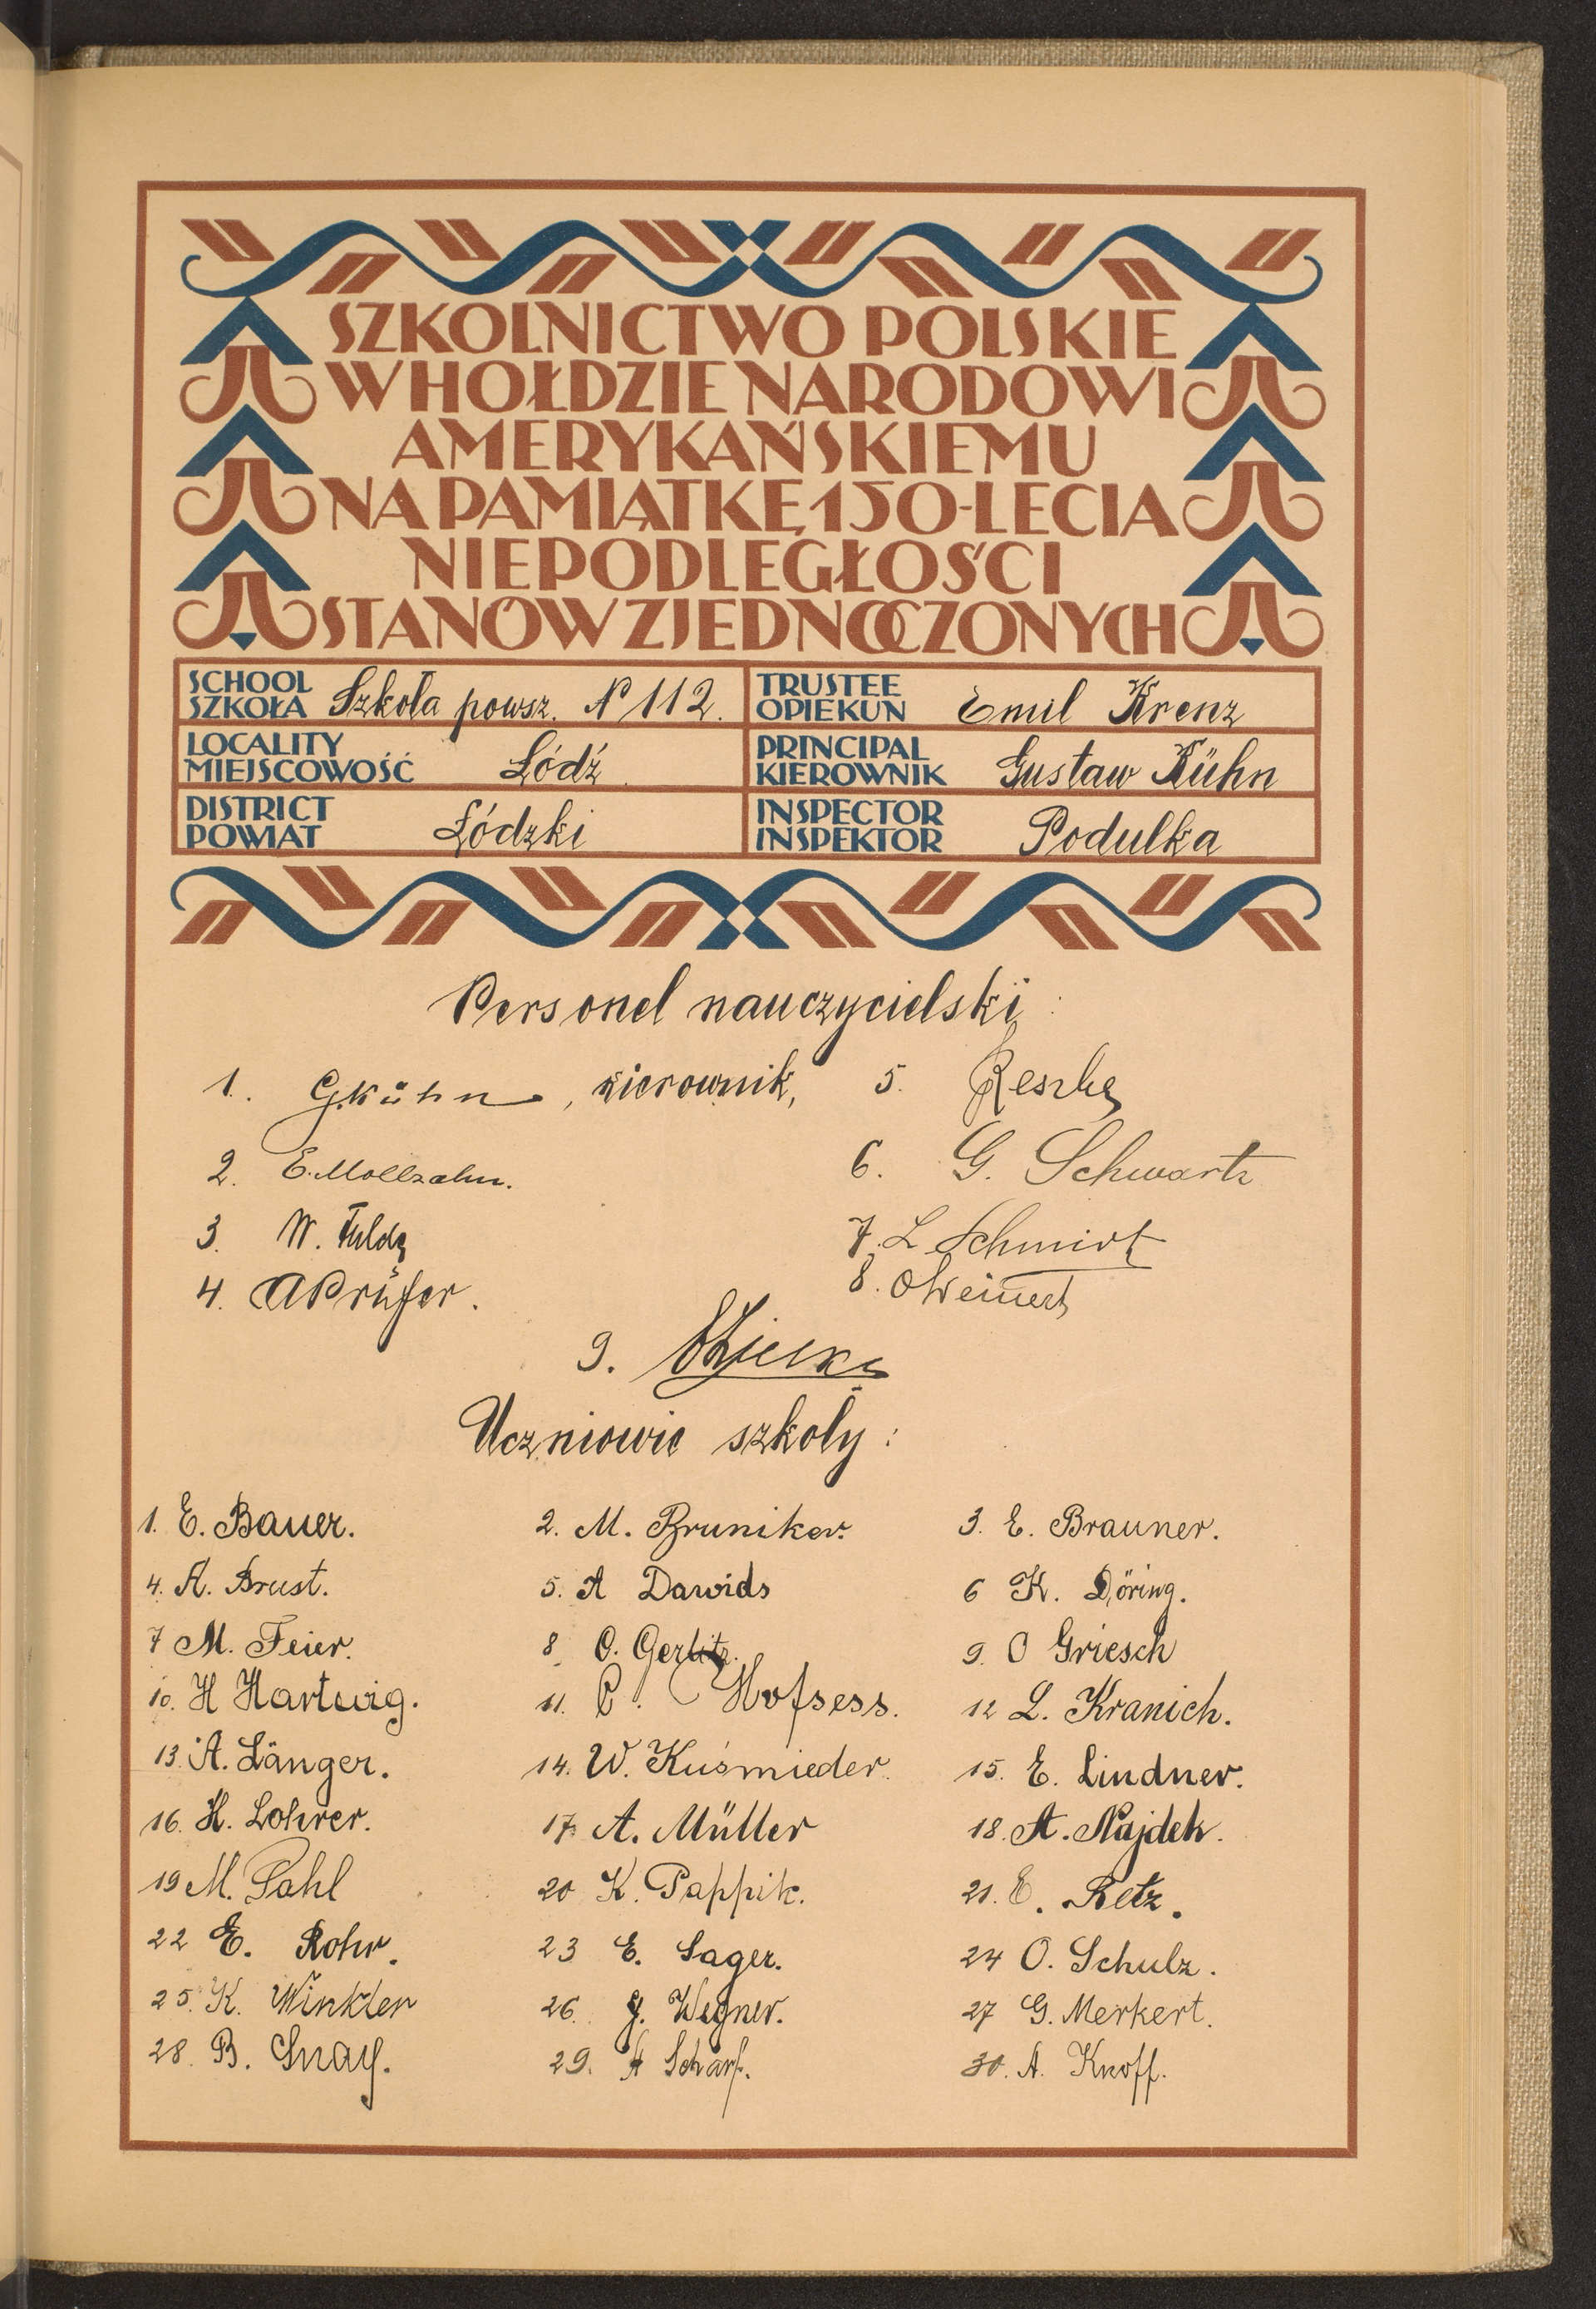 SZKOLNICTWO POLSKIE
W HOŁDZIE NARODOWI
AMERYKAŃSKIEMU
NA PAMIĄTKĘ 150-LECIA
NIEPODLEGŁOŚCI
STANÓW ZJEDNOCZONYCH
SCHOOL
SZKOŁA Szkoła powsz. N 112.
TRUSTEE
OPIEKUN Emil Krenz
LOCALITY
MIEJSCOWOŚĆ Łódź
PRINCIPAL
KIEROWNIK Gustaw Kühn
DISTRICT
POWIAT Łódzki
INSPECTOR
INSPEKTOR Podulka
Personel nauczycielski:
1. G. Kühn, kierownik, 5. Reszke
2. E. Mollzahn. 6. G. Schwartz
3. W. Fulde 7. L Schmidt
4. A Prüfer. 8. O Weinert
9.
Uczniowie szkoly:
1. E. Bauer. 2. M. Bruniker. 3. E. Brauner.
4. A. Brust. 5. A Dawids 6 K. Döring.
7 M. Feier. 8. O. Gerlitz. 9. O Griesch
10. H Hartwig. 11. P. Hofsess. 12 L. Kranich.
13. A. Länger. 14. W. Kuśmieder. 15. E. Lindner.
16. H. Lohrer. 17. A. Müller 18. A. Najdek.
19 M. Pahl 20 K. Pappik. 21. E. Retz.
22 E. Rohr. 23 E. Sager. 24 O. Schulz.
25. K. Winkler 26. J. Wegner. 27 G. Merkert.
28. B. Snay. 29. A Scharf. 30. A. Knoff.